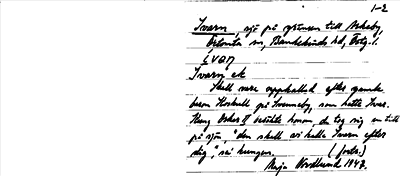 1-2
Ivarn, sjö på gränsen till Askeby,
Örtomta sn, Bankekinds hd, Östg. l.
Ivarn ek
Skall vara uppkallad efter
som hette Ivar.
Kung Oskar II besökte honom, de tog sig en titt
på sjön, "den skall vi kalla Ivarn efter
dig", sa kungen. (forts.)
Maja Nordlund 1947.